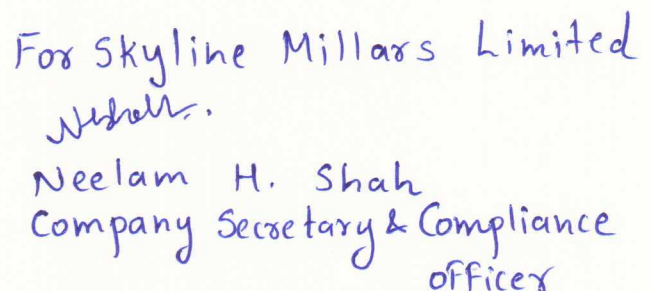 For Skyline Millars Limited
Neelam H. Shah
Company Secretary & Compliance
officer